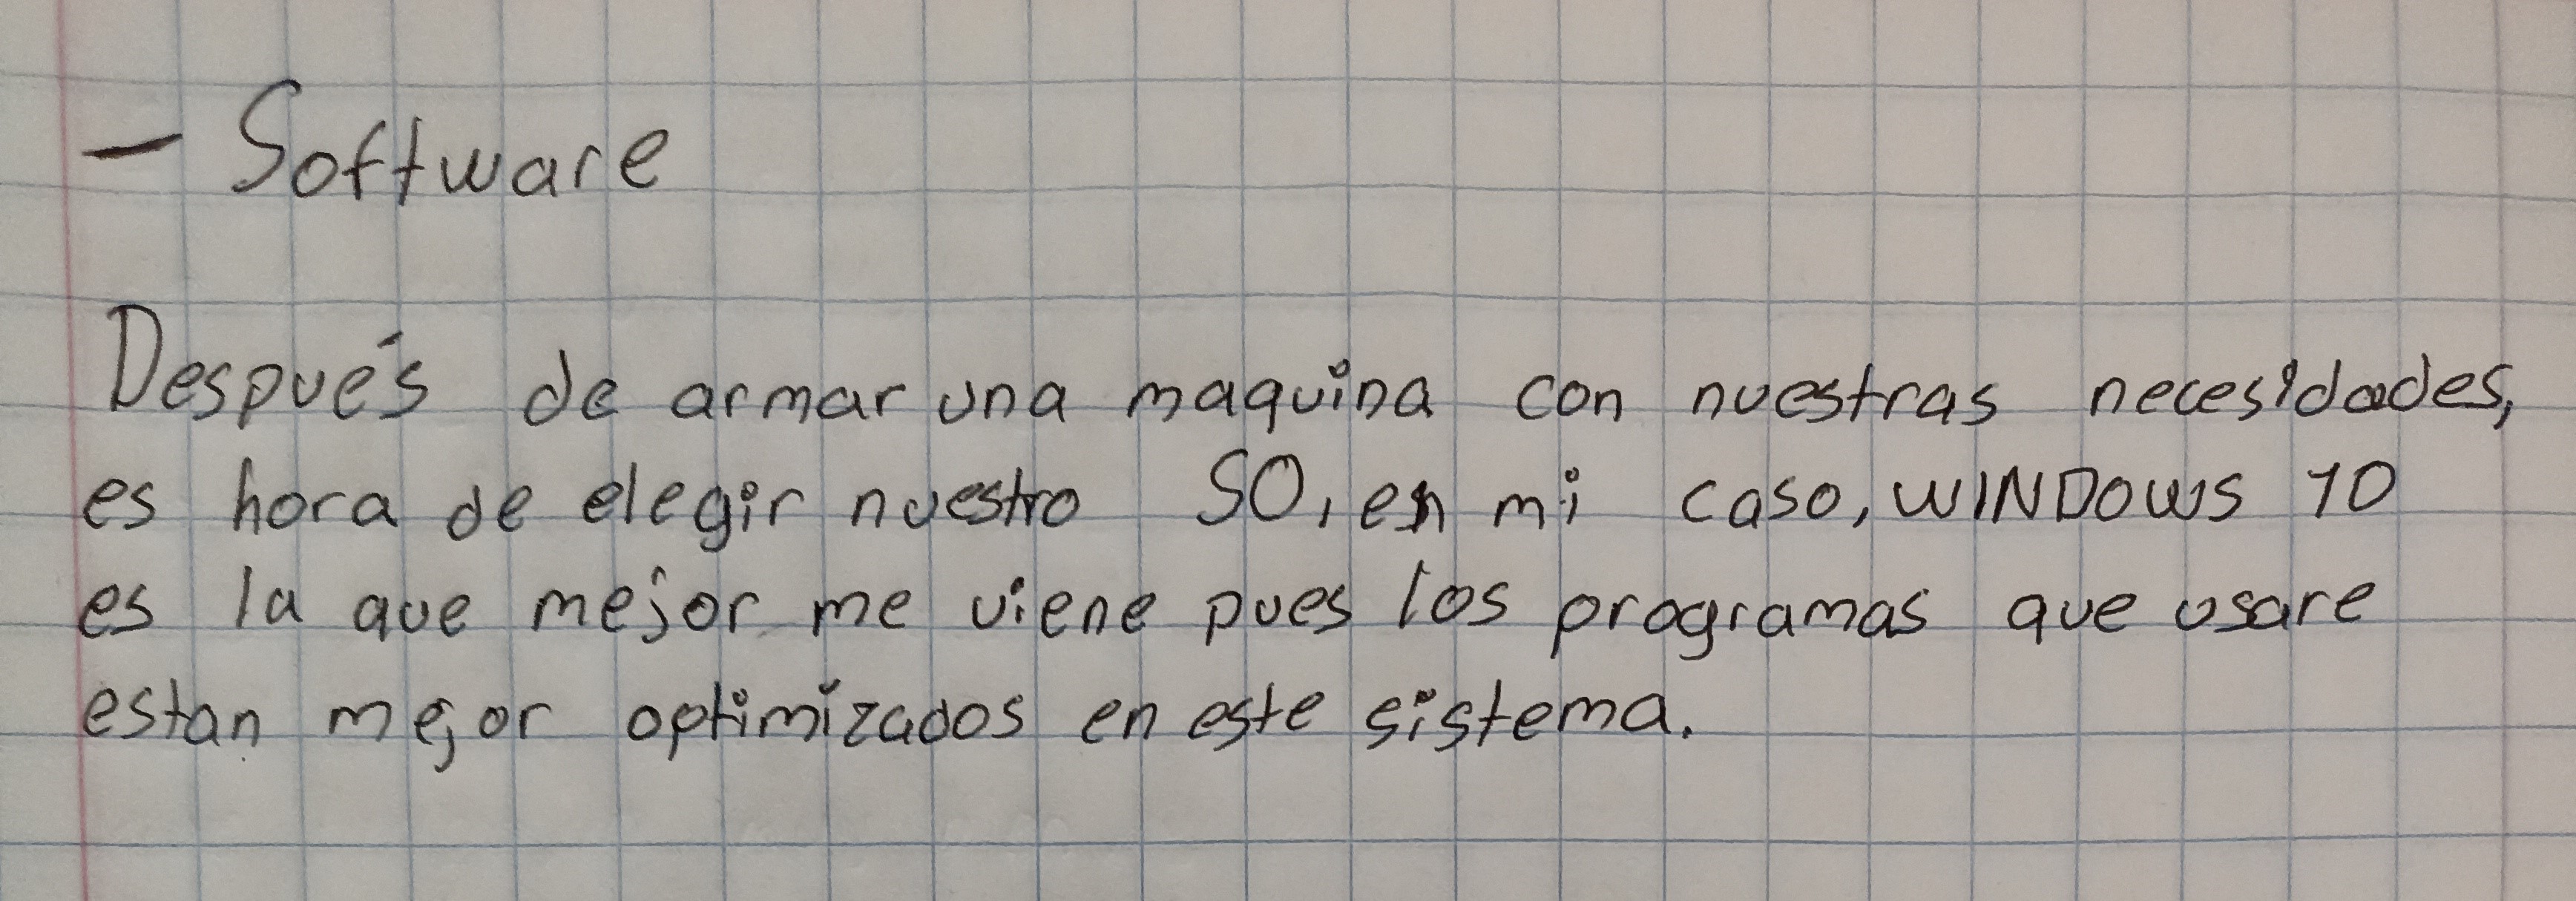 - Software
Después de armar una maquina con nuestras necesidades,
es hora de elegir nuestro SO, en mi caso, WINDOWS 10
es la que mejor me viene pues los programas que usare
estan mejor optimizados en este sistema.